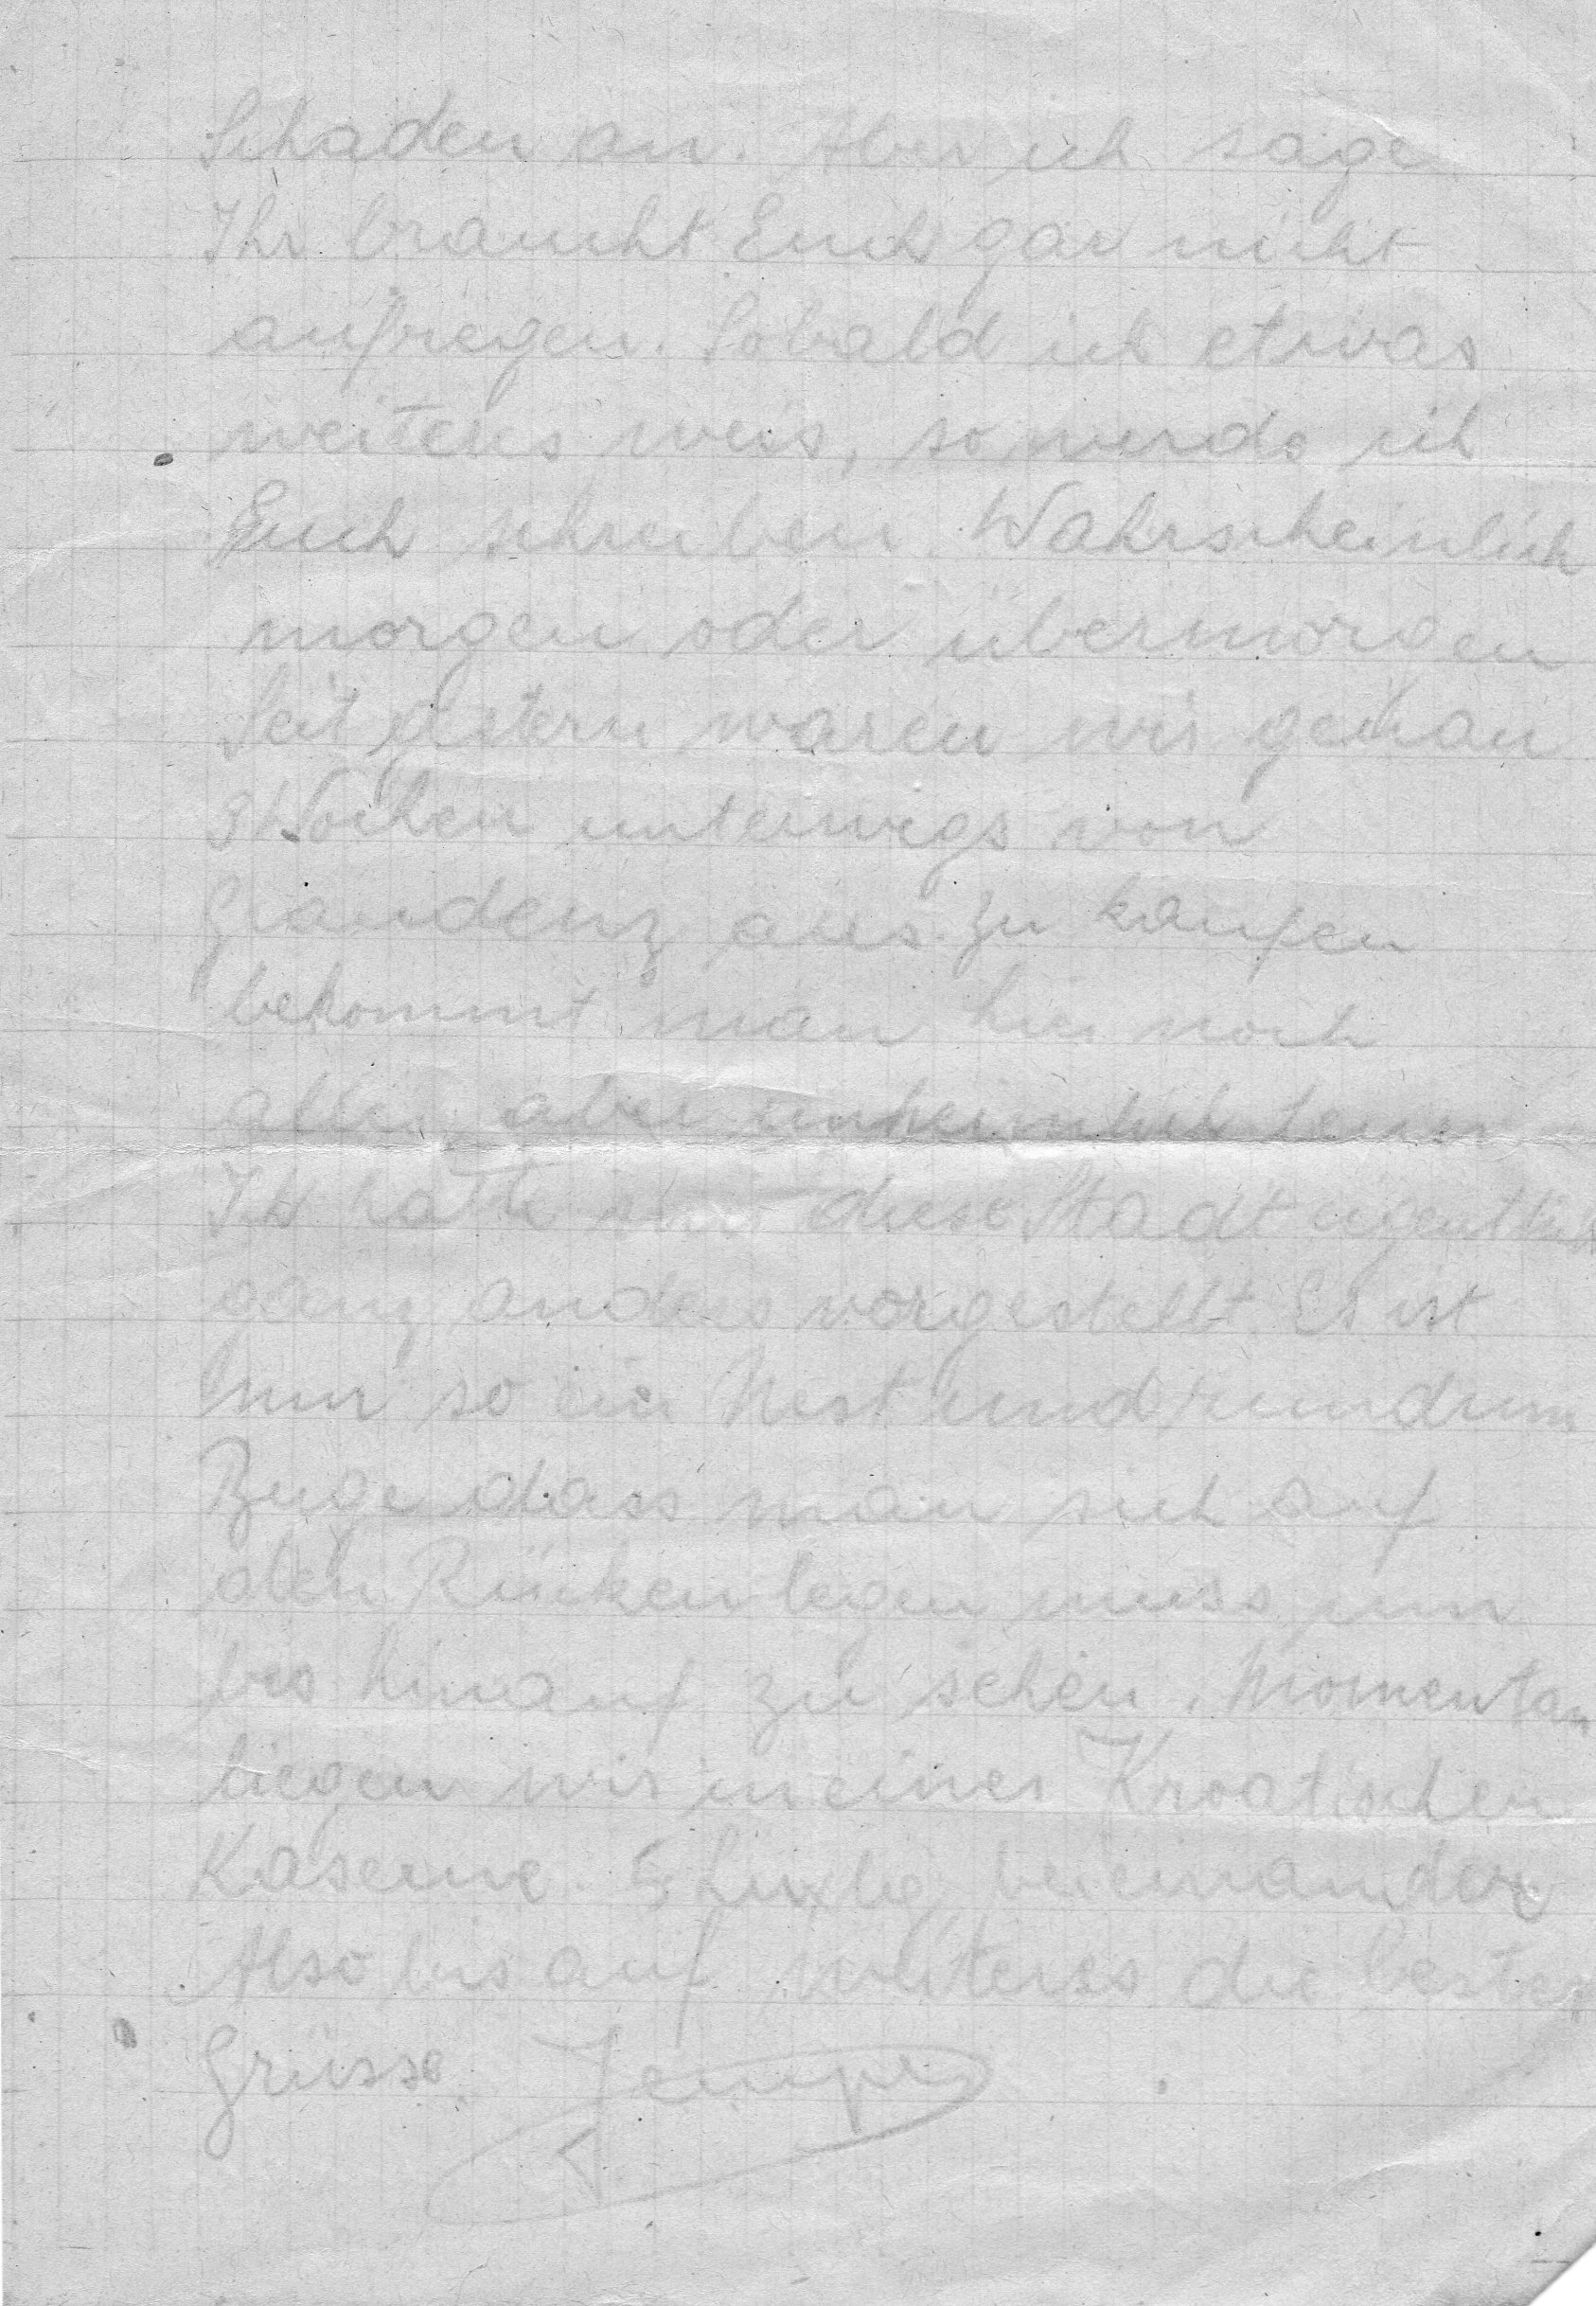 Schaden an. Aber ich sage
Ihr braucht Euch gar nicht
aufregen. Sobald ich etwas
weiteres weiss, so werde ich
Euch schreiben. Wahrscheinlich
morgen oder übermorgen
Seit gestern waren wir genau
3 Wochen unterwegs von
Graudenz aus. Zu kaufen
bekommt man hier noch
alles, aber unheimlich teuer
Ich hatte mir diese Stadt eigentlich
ganz anders vorgestellt. Es ist
nur so ein Nest und rundum
Berge dass man sich auf
den Rücken legen muss um
bis hinauf zu sehen. Momentan
liegen wir in einer Kroatischen
Kaserne. 5 beieinander
Also bis auf weiteres die besten
Grüsse Jempi